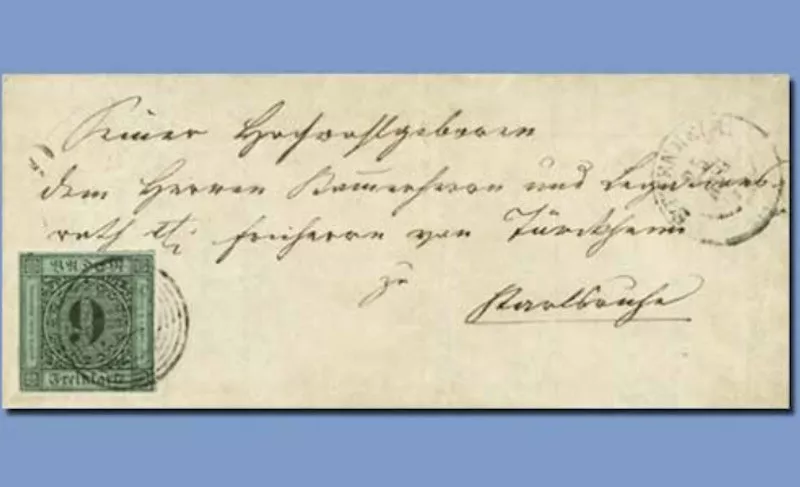 Seiner Hochwohlgeboren
dem Herren Kammerherrn und Legations-
rath Freiherrn von Türckheim
zu
Karlsruhe
BADEN
9
Freimarke
ETTENHEIM